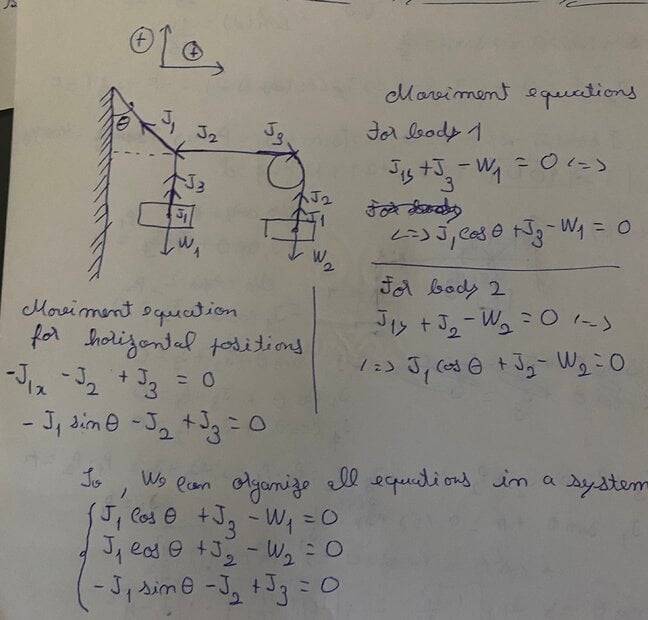 (+) (+)
θ J₁ J₂ J₃
J₃ J₂
J₁ J₁
W₁ W₂
Moviment equations
For body 1
J₁y + J₃ - W₁ = 0 <=>
<=> J₁ cos θ + J₃ - W₁ = 0
For body 2
J₁y + J₂ - W₂ = 0 <=>
<=> J₁ cos θ + J₂ - W₂ = 0
Moviment equation
for horizontal positions
-J₁x - J₂ + J₃ = 0
- J₁ sin θ - J₂ + J₃ = 0
So, We can organize all equations in a system
J₁ cos θ + J₃ - W₁ = 0
J₁ cos θ + J₂ - W₂ = 0
- J₁ sin θ - J₂ + J₃ = 0